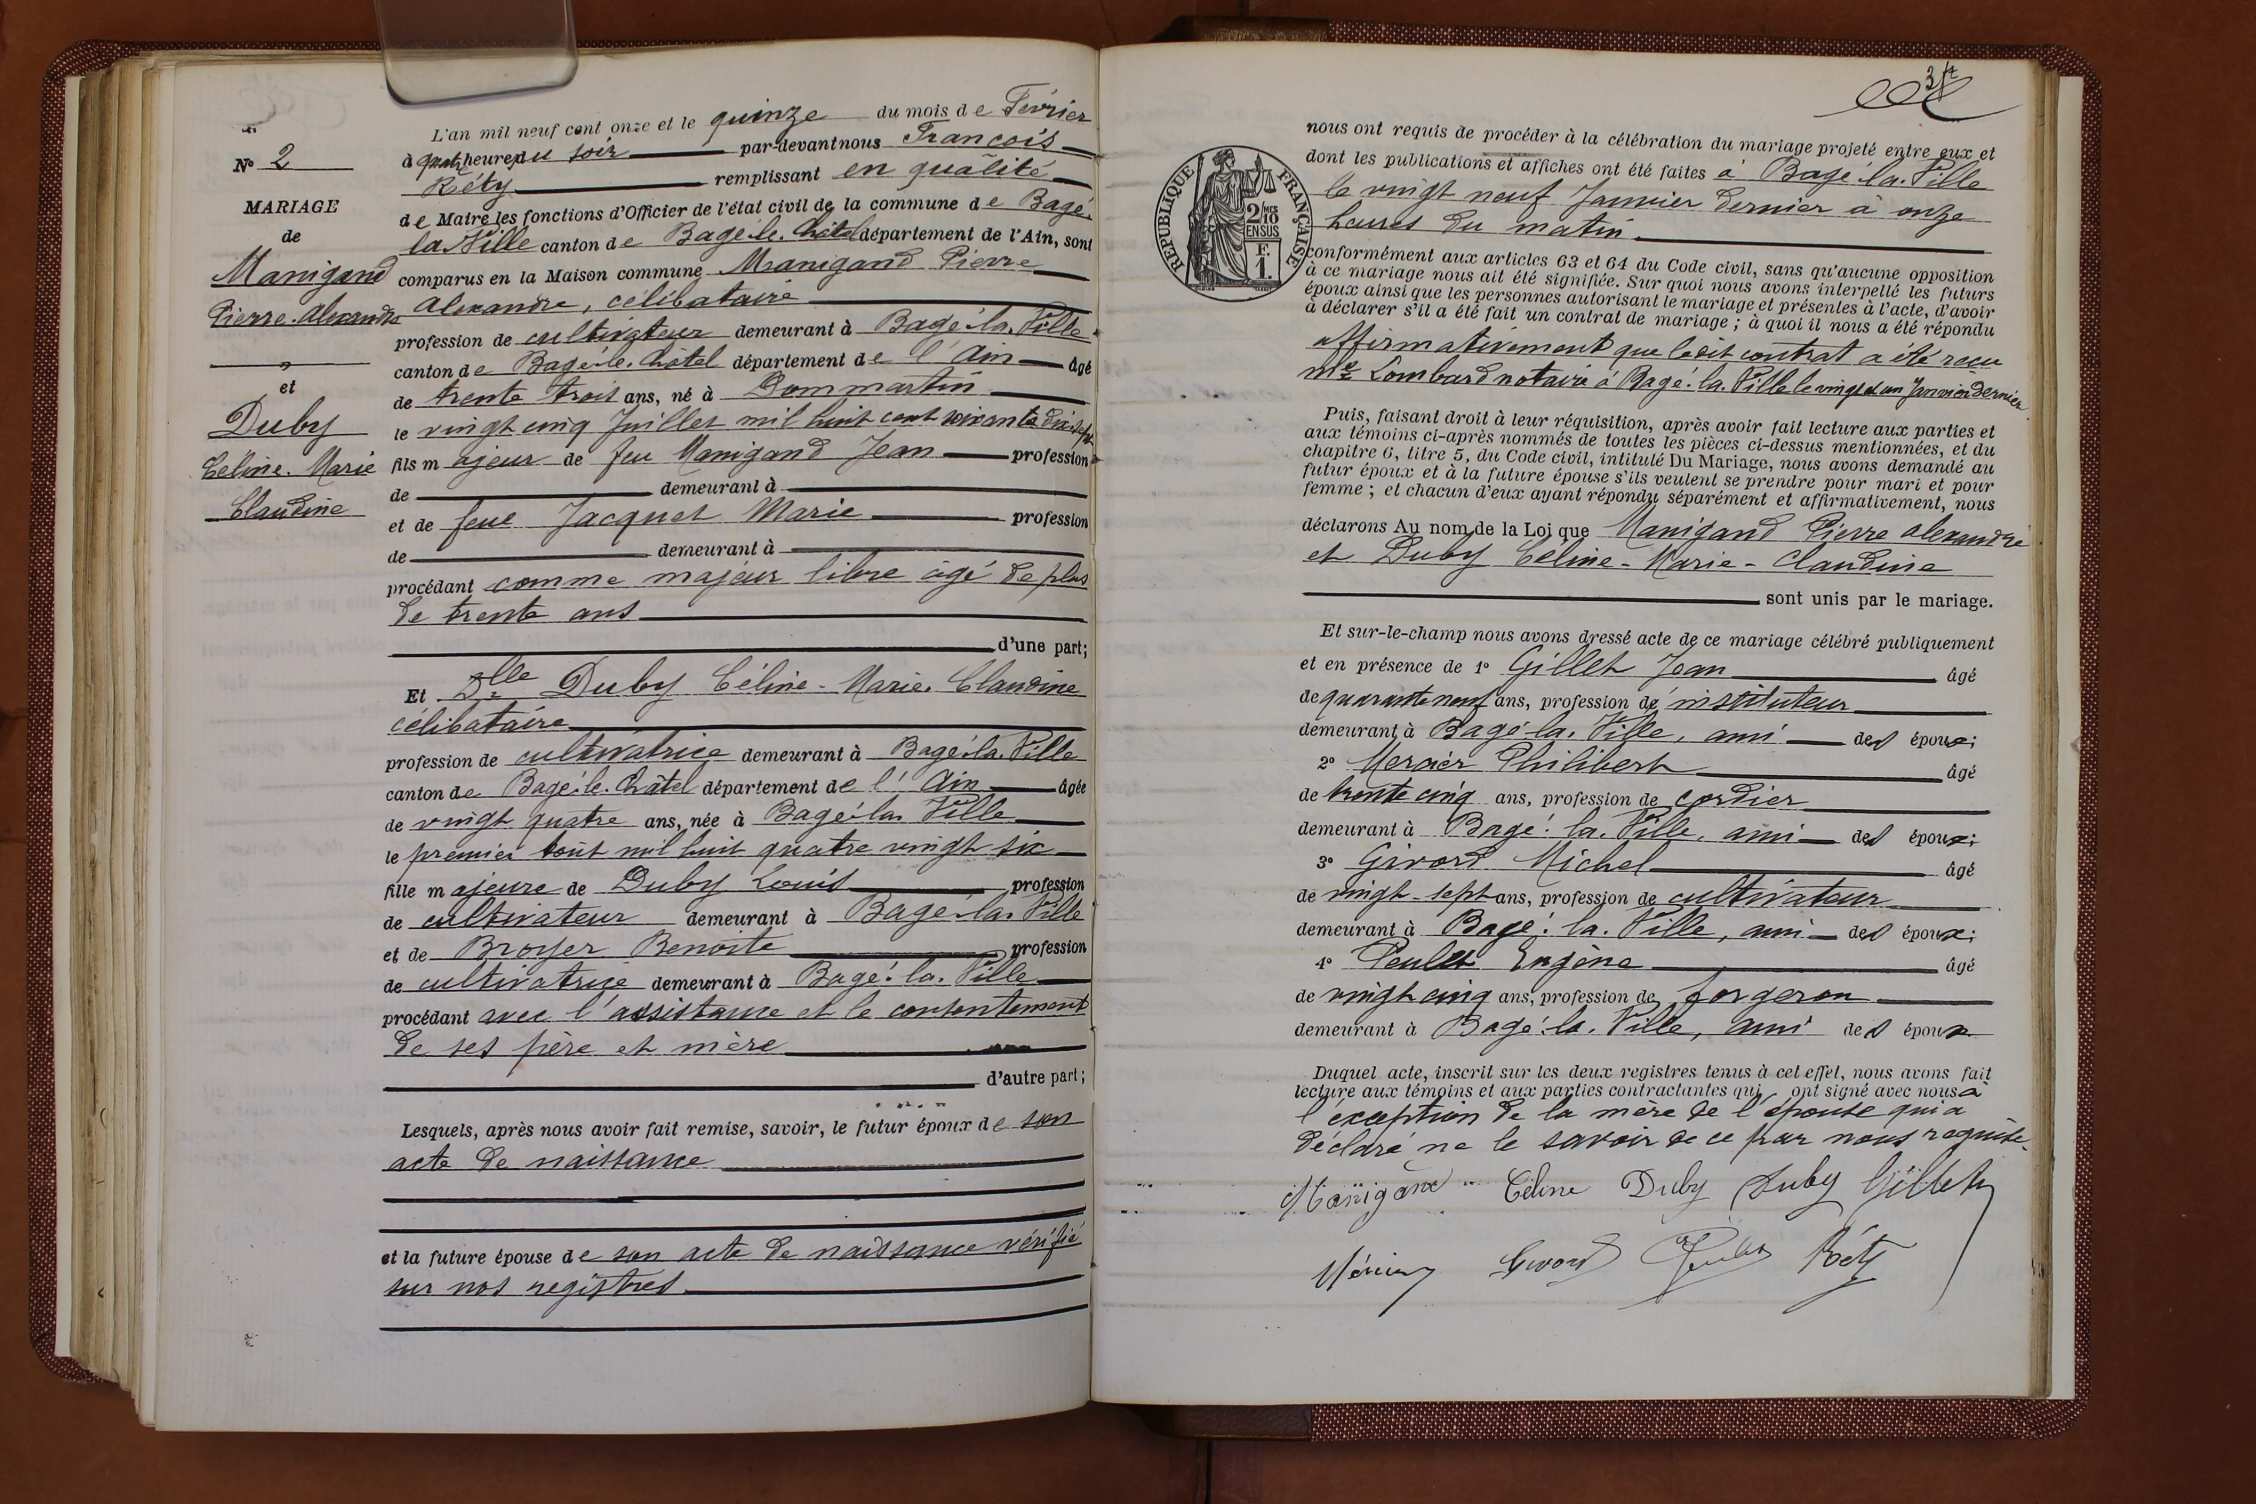 L'an mil neuf cent onze et le quinze du mois de Février
à quatre heures du soir par-devant nous François
Réty remplissant en qualité
de Maire les fonctions d'Officier de l'état civil de la commune de Bagé-
la Ville canton de Bagé-le-Châtel département de l'Ain, sont
comparus en la Maison commune Manigand Pierre
Alexandre, célibataire
profession de cultivateur demeurant à Bagé-la-Ville
canton de Bagé-le-Châtel département de l'Ain âgé
de trente trois ans, né à Dommartin
le vingt cinq Juillet mil huit cent soixante dix sept
fils majeur de feu Manigand Jean profession
de demeurant à
et de feue Jacquet Marie profession
de demeurant à
procédant comme majeur libre âgé de plus
de trente ans
d'une part;
Et Dlle Duby Céline-Marie-Claudine
célibataire
profession de cultivatrice demeurant à Bagé-la-Ville
canton de Bagé-le-Châtel département de l'Ain âgée
de vingt quatre ans, née à Bagé-la-Ville
le premier août mil huit quatre vingt six
fille majeure de Duby Louis profession
de cultivateur demeurant à Bagé-la-Ville
et de Broyer Benoite profession
de cultivatrice demeurant à Bagé-la-Ville
procédant avec l'assistance et le consentement
de ses père et mère
d'autre part;
Lesquels, après nous avoir fait remise, savoir, le futur époux de son
acte de naissance
et la future épouse de son acte de naissance vérifié
sur nos registres
No 2
MARIAGE
de
Manigand
Pierre-Alexandre
et
Duby
Céline-Marie
Claudine
nous ont requis de procéder à la célébration du mariage projeté entre eux et
dont les publications et affiches ont été faites à Bagé-la-Ville
le vingt neuf Janvier dernier à onze
heures du matin
RÉPUBLIQUE FRANÇAISE
2/10 EN SUS
F.
1.
conformément aux articles 63 et 64 du Code civil, sans qu'aucune opposition
à ce mariage nous ait été signifiée. Sur quoi nous avons interpellé les futurs
époux ainsi que les personnes autorisant le mariage et présentes à l'acte, d'avoir
à déclarer s'il a été fait un contrat de mariage; à quoi il nous a été répondu
affirmativement que ledit contrat a été reçu
Me Lombard notaire à Bagé-la-Ville le vingt et un Janvier dernier
Puis, faisant droit à leur réquisition, après avoir fait lecture aux parties et
aux témoins ci-après nommés de toutes les pièces ci-dessus mentionnées, et du
chapitre 6, titre 5, du Code civil, intitulé Du Mariage, nous avons demandé au
futur époux et à la future épouse s'ils veulent se prendre pour mari et pour
femme; et chacun d'eux ayant répondu séparément et affirmativement, nous
déclarons Au nom de la Loi que Manigand Pierre Alexandre
et Duby Céline-Marie-Claudine
sont unis par le mariage.
Et sur-le-champ nous avons dressé acte de ce mariage célébré publiquement
et en présence de 1º Gillet Jean âgé
de quarante neuf ans, profession de instituteur
demeurant à Bagé-la-Ville, ami des époux;
2º Mercier Philibert âgé
de trente cinq ans, profession de cordier
demeurant à Bagé-la-Ville, ami des époux;
3º Givord Michel âgé
de vingt-sept ans, profession de cultivateur
demeurant à Bagé-la-Ville, ami des époux;
4º Peulet Eugène âgé
de vingt cinq ans, profession de forgeron
demeurant à Bagé-la-Ville, ami des époux
Duquel acte, inscrit sur les deux registres tenus à cet effet, nous avons fait
lecture aux témoins et aux parties contractantes qui ont signé avec nous à
l'exception de la mère de l'épouse qui a
déclaré ne le savoir de ce par nous requise
Manigand Céline Duby Duby Gillet
Mercier Givord Peulet Réty